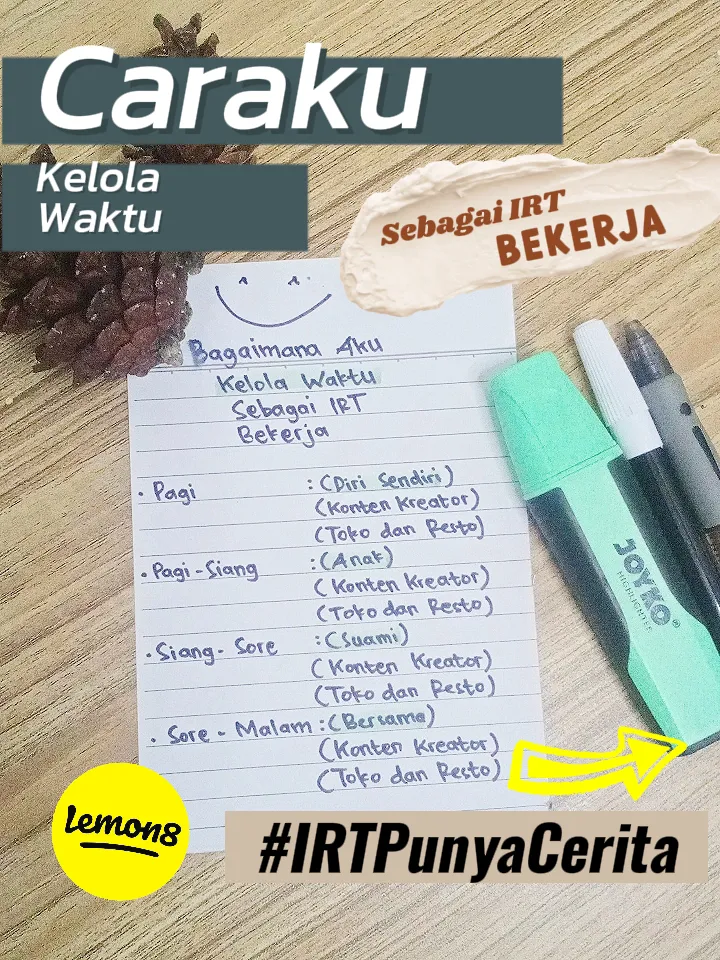 Caraku
Kelola
Waktu
Sebagai IRT
BEKERJA
Bagaimana Aku
Kelola Waktu
Sebagai IRT
Bekerja
• Pagi : (Diri Sendiri)
(Konten Kreator)
(Toko dan Resto)
• Pagi - Siang : (Anak)
(Konten Kreator)
(Toko dan Resto)
• Siang - Sore : (Suami)
(Konten Kreator)
(Toko dan Resto)
• Sore - Malam : (Bersama)
(Konten Kreator)
(Toko dan Resto)
JOYKO®
HIGHLIGHTER
Lemon8
#IRTPunyaCerita